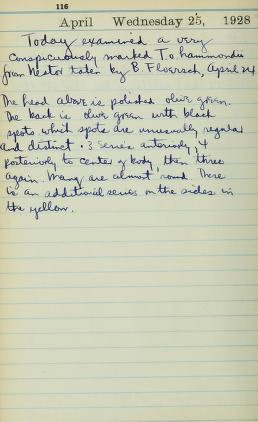 116
April Wednesday 25, 1928
Today examined a very
conspicuously marked T. o. hammondi
from Nestor taken by B. Floersch, April 24
The head above is polished olive green.
The back is olive green with black
spots which spots are unusually regular
and distinct. 3 series anteriorly, 4
posteriorly to center of body, then three
again. Many are almost round. There
is an additional series on the sides in
the yellow.